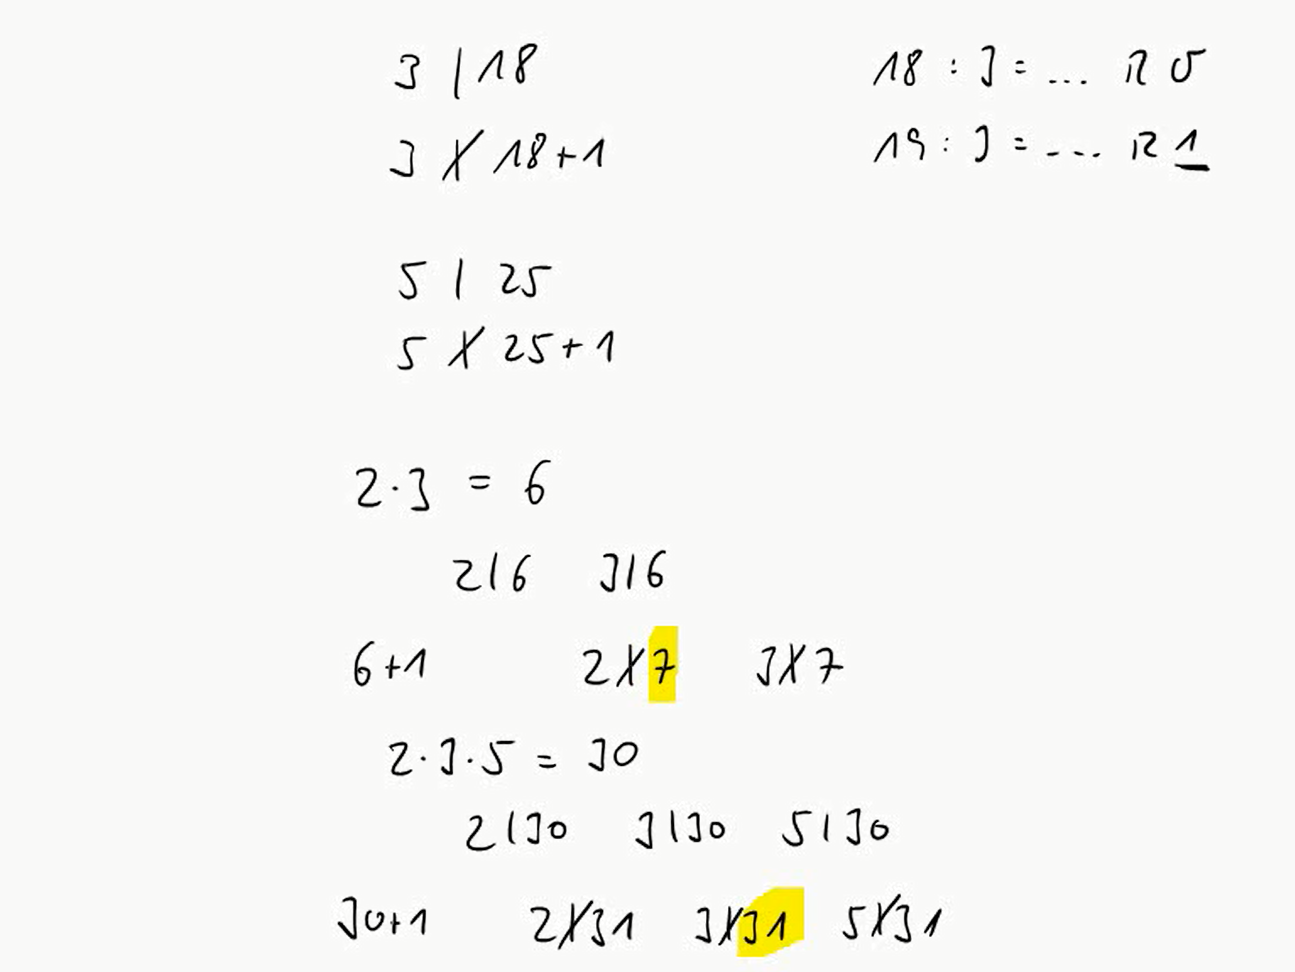 3 | 18 18 : 3 = ... R 0
3 ∤ 18+1 19 : 3 = ... R 1
5 | 25
5 ∤ 25+1
2·3 = 6
2|6 3|6
6+1 2∤7 3∤7
2·3·5 = 30
2|30 3|30 5|30
30+1 2∤31 3∤31 5∤31